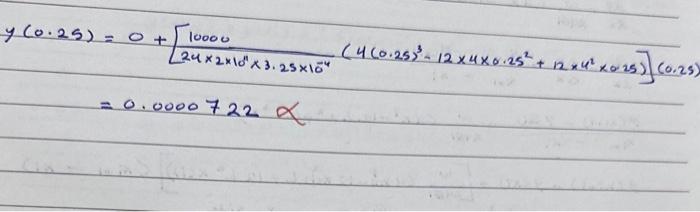 y(0.25) = 0 + [10000 / 24×2×10¹¹×3.25×10⁻⁴ (4(0.25)³ - 12×4×0.25² + 12×4²×0.25)](0.25)
= 0.0000722